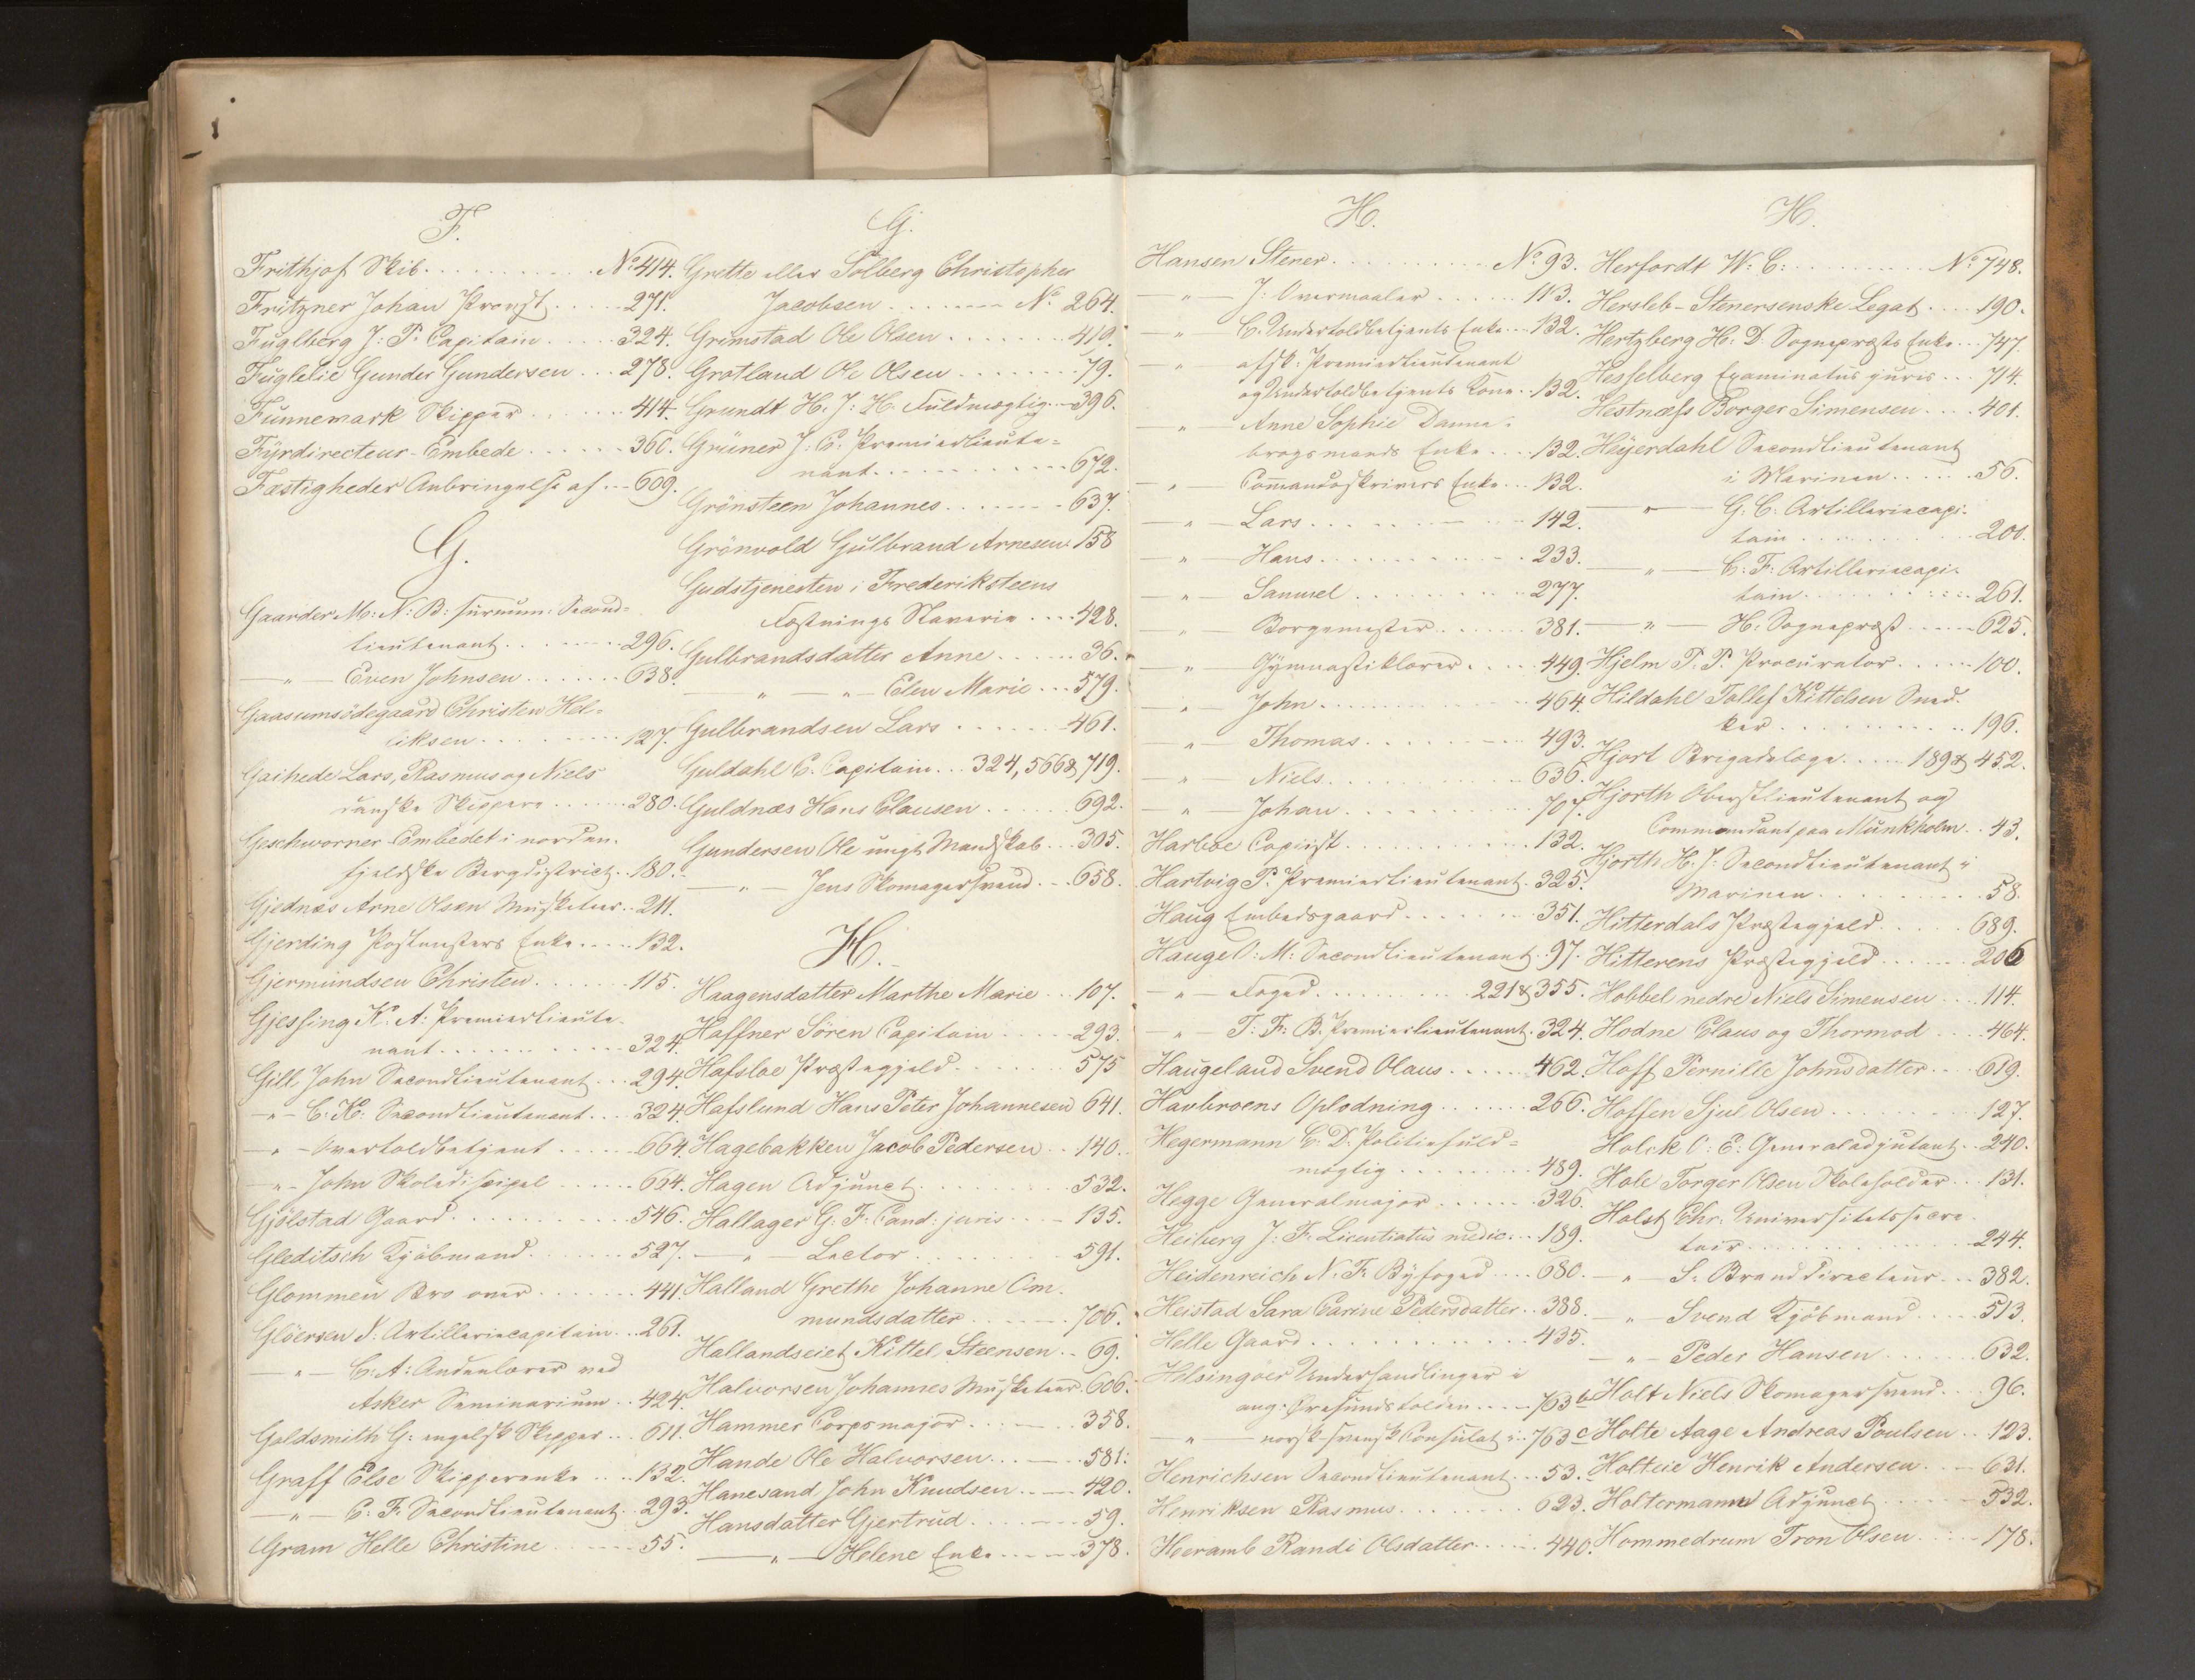 F.
Frithjof Skib . . . . . No 414.
Fritzner Johan Provst . . . 271.
Fuglberg J: P. Capitain . . . 324.
Fuglelie Gunder Gundersen . . . 278.
Funnemark Skipper . . . 414.
Fyrdirecteur-Embede . . . 360.
Fæstigheder Anbringelse af . . . 609.
G.
Gaarder M: N: B: surnum: Second=
lieutenant . . . 296.
— " — Even Johnsen . . . 638.
Gaasumsödegaard Christen Hel=
liksen . . . 127.
Gaihede Lars, Rasmus og Niels
danske Skippere . . . 280.
Geschworner-Embedet i norden-
fjeldske Bergdistrict . . 180.
Gjednæs Arne Olsen Musketeer . . 211.
Gjerding Postmesters Enke . . . 132.
Gjermundsen Christen . . . 115.
Gjessing K: A: Premierlieute-
nant . . . 324.
Gill John Secondlieutenant . . . 294.
— " — C: K: Secondlieutenant . . . 324.
— " — Overtoldbetjent . . . 664.
— " — John Skolediscipel . . . 664.
Gjölstad Gaard . . . 546.
Gleditsch Kjöbmand . . . 527.
Glommen Bro over . . . 441.
Glöersen N: Artilleriecapitain . . 261.
— " — C: A: Andenlærer ved
Asker Seminarium . . 424.
Goldsmith G: engelsk Skipper . . . 611.
Graff Else Skipperenke . . . 132.
— " — C. F. Secondlieutenant . 293.
Gram Helle Christine . . . 55.
G.
Grette eller Solberg Christopher
Jacobsen . . . No 264.
Grimstad Ole Olsen . . . 419.
Grotland Ole Olsen . . . 79.
Grundt H. J: H. Fuldmægtig . . . 396.
Grüner J: C: Premierlieute=
nant . . . 672.
Grönsteen Johannes . . . 637.
Grönvold Gulbrand Arnesen 158
Gudstjenesten i Frederiksteens
Fæstnings Slaverie . . . 428.
Gulbrandsdatter Anne . . . 36.
— " — " — Elen Marie . . . 579.
Gulbrandsen Lars . . . 461.
Guldahl C. Capitain . . . 324, 566 & 719.
Guldnæs Hans Clausen . . . 692.
Gundersen Ole ungt Mandskab . . . 305.
— " — Jens Skomagersvend . . . 658.
H.
Haagensdatter Marthe Marie . . . 107.
Haffner Sören Capitain . . . 293.
Hafsloe Præstegjeld . . . 575
Hafslund Hans Peter Johannesen 641.
Hagebakken Jacob Pedersen . . 140.
Hagen Adjunct . . . 532.
Hallager G: F: Cand: juris . . . 135.
— " — Lector . . . 591.
Halland Grethe Johanne Om-
mundsdatter . . . 706.
Hallandseiet Kittel Steensen . . 69.
Halvorsen Johannes Musketeer . 606.
Hammer Corpsmajor . . . 358.
Hande Ole Halvorsen . . . 581.
Hanesand John Knudsen . . . 420.
Hansdatter Gjertrud . . . 59.
— " — Helene Enke . . . 378.
H.
Hansen Stener . . . No 93.
— " — J: Overmaaler . . . 113.
— " — C. Undertoldbetjents Enke . . . 132.
— " — afsk: Premierlieutenant
og Undertoldbetjents Kone . . 132.
— " — Anne Sophie Danne=
brogsmands Enke . . . 132.
— " — Commandoskrivers Enke . . . 132.
— " — Lars . . . 142.
— " — Hans . . . 233.
— " — Samuel . . . 277.
— " — Borgemester . . . 381.
— " — Gymnastiklærer . . . 449.
— " — John . . . 464.
— " — Thomas . . . 493.
— " — Niels . . . 636.
— " — Johan . . . 707.
Harboe Copiist . . . 132.
Hartvig P. Premierlieutenant . 325.
Haug Embedsgaard . . . 351.
Hauge O: M: Secondlieutenant . . 97.
— " — Foged . . . 221 & 355.
— " — T: F: B. Premierlieutenant . 324.
Haugeland Svend Olaus . . . 462.
Havbroens Oplodning . . . 266.
Hegermann C: D. Politiefuld=
mægtig . . . 489.
Hegge Generalmajor . . . 326.
Heiberg J: F. Licentiatus medic: . . 189.
Heidenreich N. F. Byfoged . . . 680.
Heistad Sara Carine Pedersdatter . . 388.
Helle Gaard . . . 435.
Helsingoer Underhandlinger i
ang: Øresundstolden . . . 763 b
— " — norsk-svensk Consulat i . . 763 c
Henrichsen Secondlieutenant . . . 53.
Henriksen Rasmus . . . 623.
Heeramb Randi Olsdatter . . . 440.
H.
Herfordt W: C: . . . No 748.
Hersleb-Stenersenske Legat . . . 190.
Hertzberg H: D. Sognepræsts Enke . . . 747.
Hesselberg Examinatus juris . . . 714.
Hestnæss Borger Simensen . . . 401.
Heyerdahl Secondlieutenant
i Marinen . . . 56.
— " — G: C: Artilleriecapi-
tain . . . 201.
— " — C: F: Artilleriecapi-
tain . . . 261.
— " — H: Sognepræst . . . 625.
Hjelm P. P. Procurator . . . 100.
Hildahl Tollef Kittelsen Sned-
ker . . . 196.
Hjort Brigadelæge . . . 189 & 452.
Hjorth Oberstlieutenant og
Commandant paa Munkholm . . 43.
Hjorth H. J: Secondlieutenant i
Marinen . . . 58.
Hitterdals Præstegjeld . . . 689.
Hitterens Præstegjeld . . . 206
Hobbel nedre Niels Simensen . . . 114.
Hodne Claus og Thormod . . . 464.
Hoff Pernille Johnsdatter . . . 619.
Hoffen Sjul Olsen . . . 127.
Holck O: E: Generaladjutant . . . 240.
Hole Torger Olsen Skoleholder . . . 131.
Holst Chr. Universitetssecre-
tair . . . 244.
— " — S: Branddirecteur . . . 382.
— " — Svend Kjöbmand . . . 513.
— " — Peder Hansen . . . 632.
Holt Niels Skomagersvend . . . 96.
Holte Aage Andreas Poulsen . . 123.
Holteie Henrik Andersen . . . 631.
Holtermann Adjunct . . . 532.
Hommedrum Tron Olsen . . . 178.